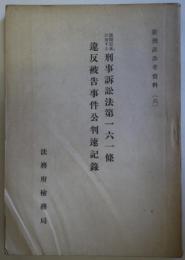 新刑訴訟參考資料(六)
刑事訴訟法第一六一條
違反被告事件公判速記錄
法務府檢務局